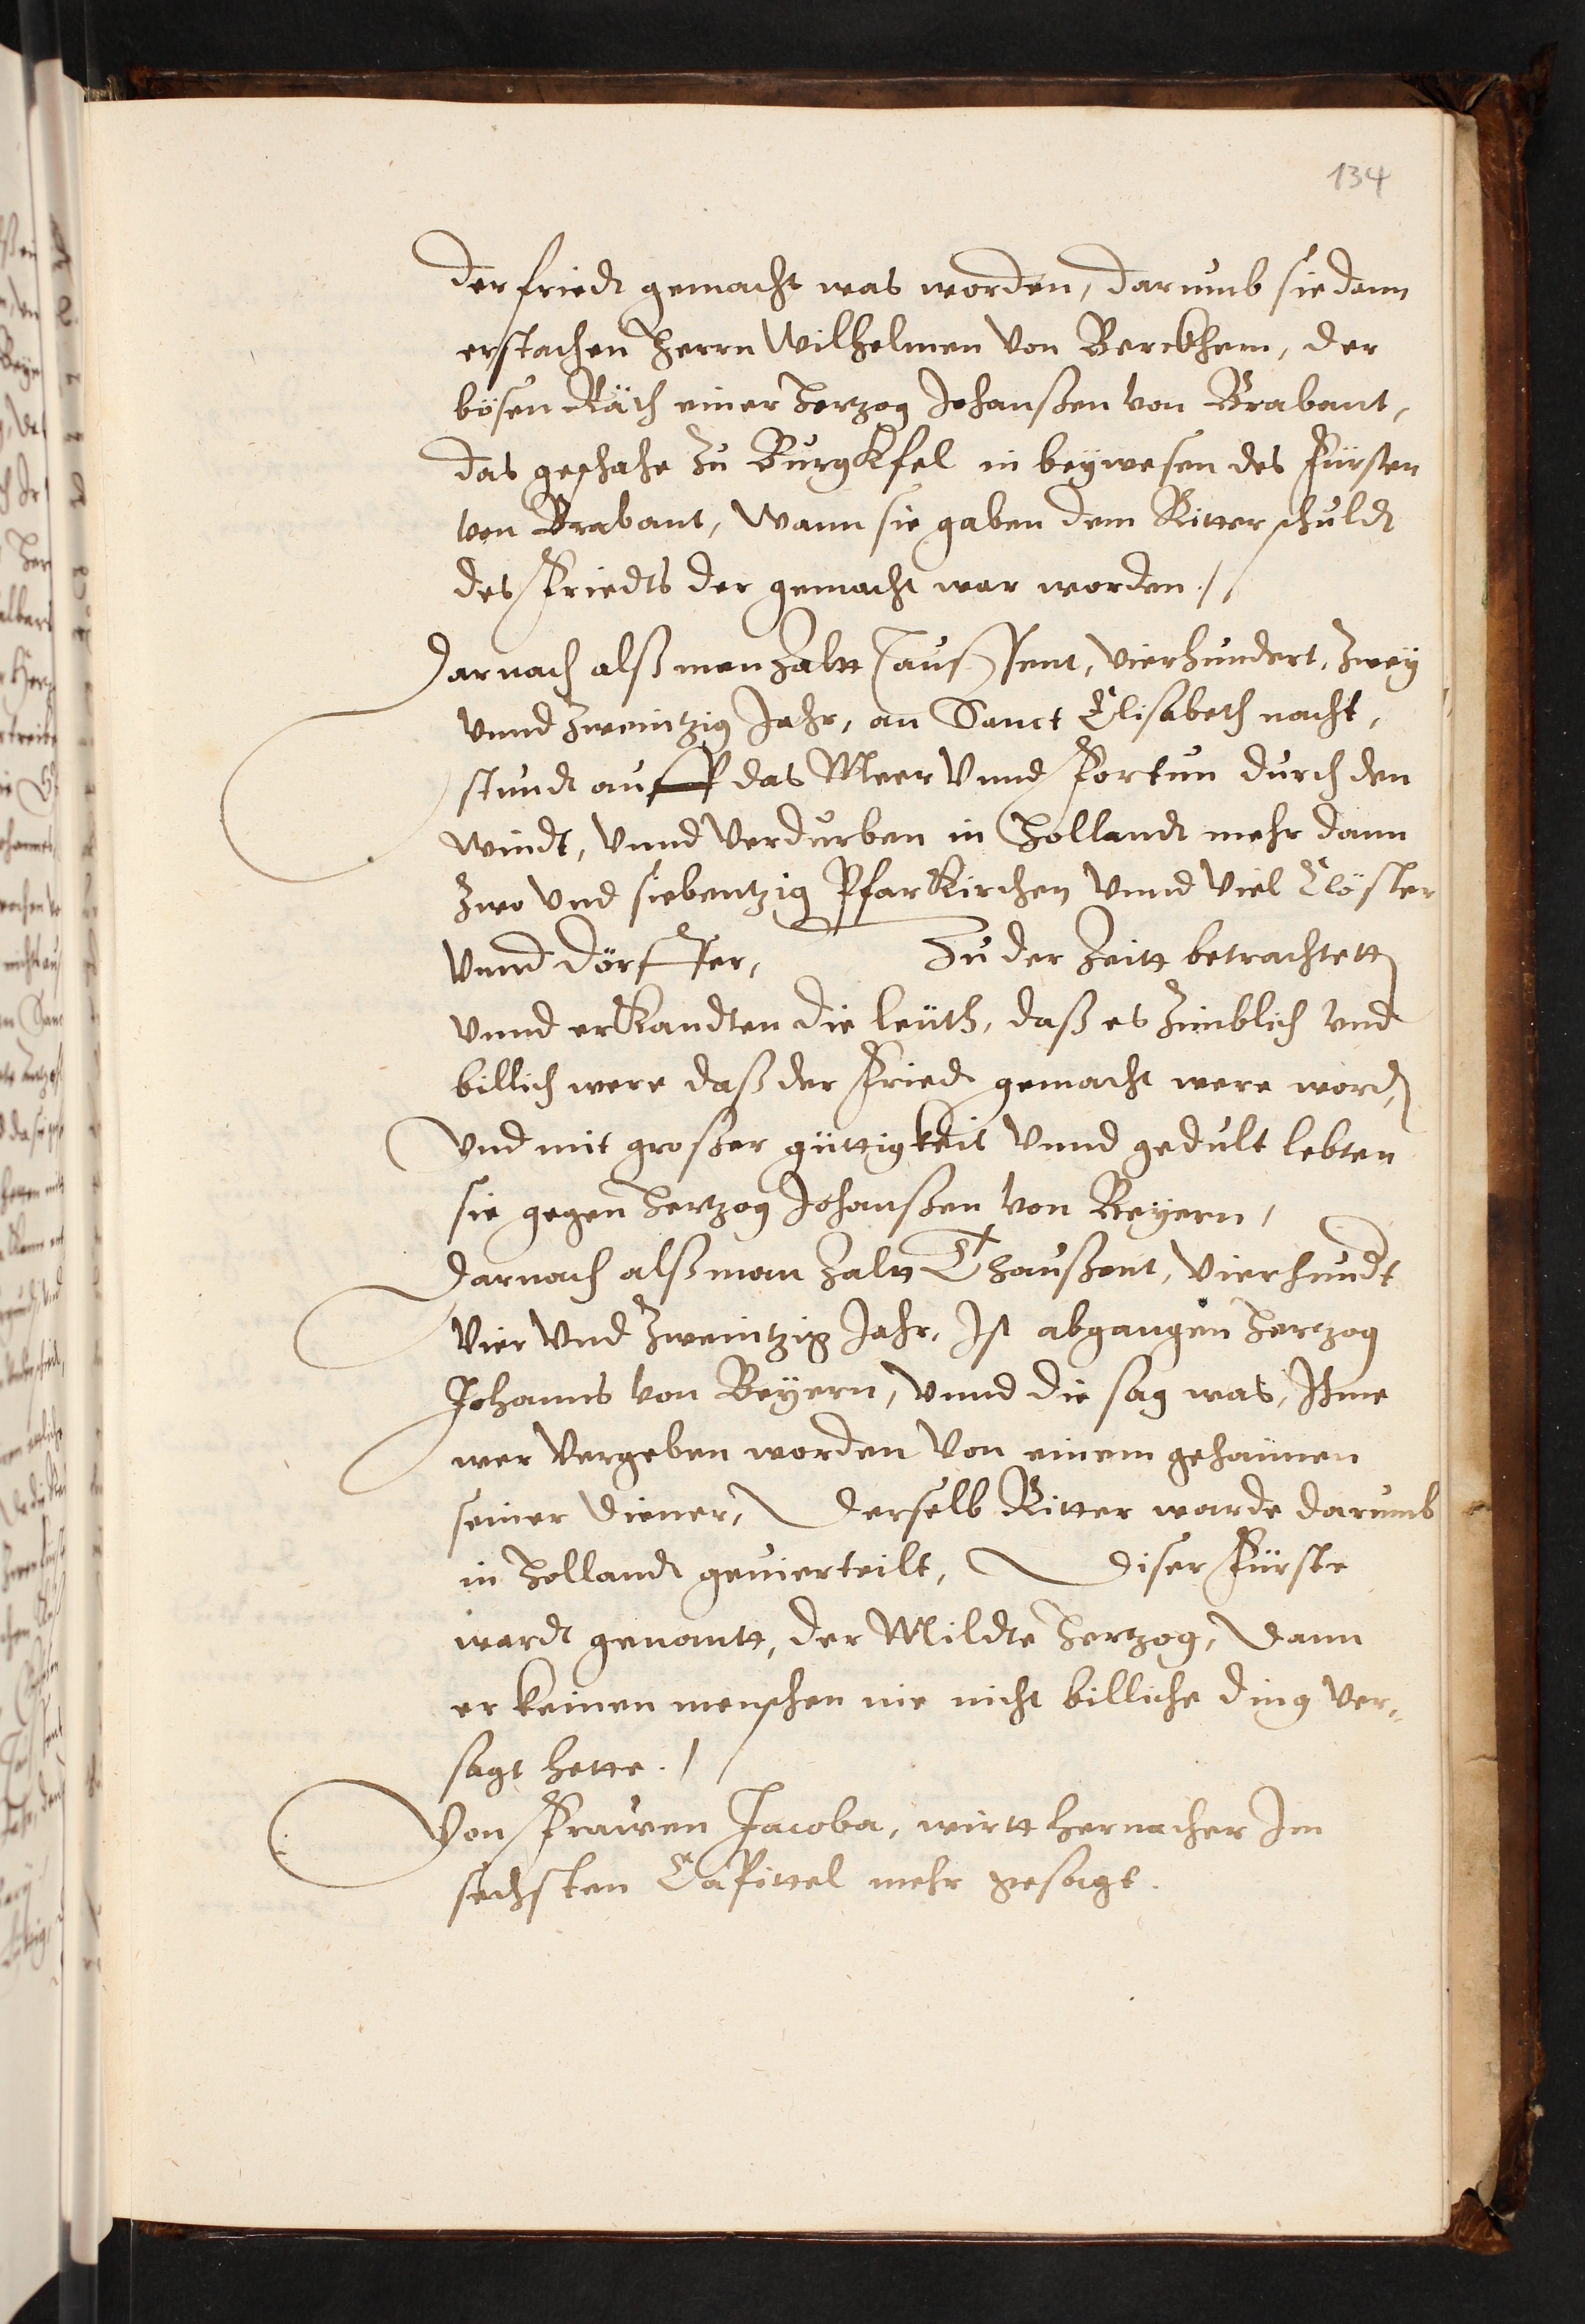 134
der friedt gemacht was worden, darumb sie dann
erstachen Herrn Wilhelmen von Berckhem, der
bösen Räth einer Hertzog Johanßen von Brabant,
das geschahe zu Burgkfel in beywesen des Fürsten
von Brabant, Wann sie gaben dem Ritter schuldt
des Friedts der gemacht war worden./
Darnach alß man Zaltt Taußent, vierhundert, zwey
vnnd zweintzig Jahr, an Sanct Elisabeth nacht,
stundt auff das Meer vnnd Fortun durch den
Windt, vnnd verdurben in Hollandt mehr dann
zwo vnd siebentzig Pfarkirchen vnnd viel Clöster
vnnd Dörffer, Zu der Zeitt betrachtett
vnnd erkandten die leüth, daß es zimblich vnd
billich were daß der Friedt gemacht were word,
Vnd mit großer güttigkeit vnnd gedult lebten
sie gegen Hertzog Johanßen von Beyern,
Darnach alß man Zaltt Thaußent, vierhundt
Vier vnd zweintzig Jahr, Ist abgangen Hertzog
Johanns von Beyern, vnnd die sag was, Ihme
wer vergeben worden von einem gehaimen
seiner Diener, Derselb Ritter warde darumb
in Hollandt geuierteilt, Diser Fürste
wardt genantt, der Mildte Hertzog, Dann
er keinen menschen nie nicht billiche ding ver„
sagt hette./
Von Frawen Jacoba, wirtt hernacher Im
sechsten Capittel mehr gesagt.